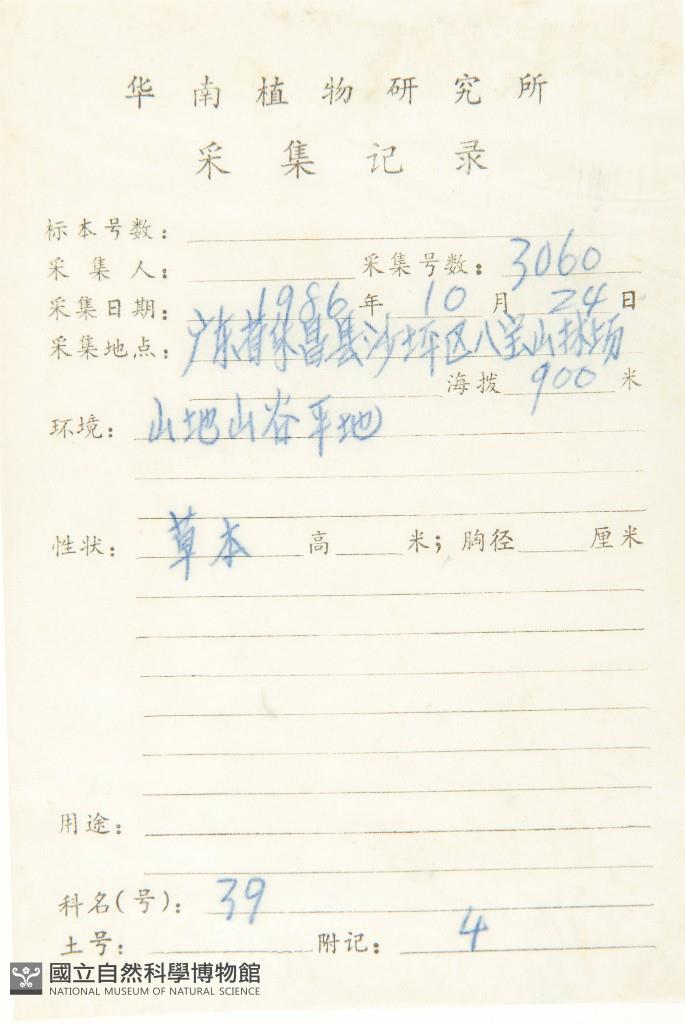 华南植物研究所
采集记录
标本号数：
采集人： 采集号数：3060
采集日期：1986年10月24日
采集地点：广东省乐昌县沙坪区八宝山林场
海拨900米
环境：山地山谷平地
性状：草本 高 米；胸径 厘米
用途：
科名(号)：39
土号： 附记：4
國立自然科學博物館
NATIONAL MUSEUM OF NATURAL SCIENCE